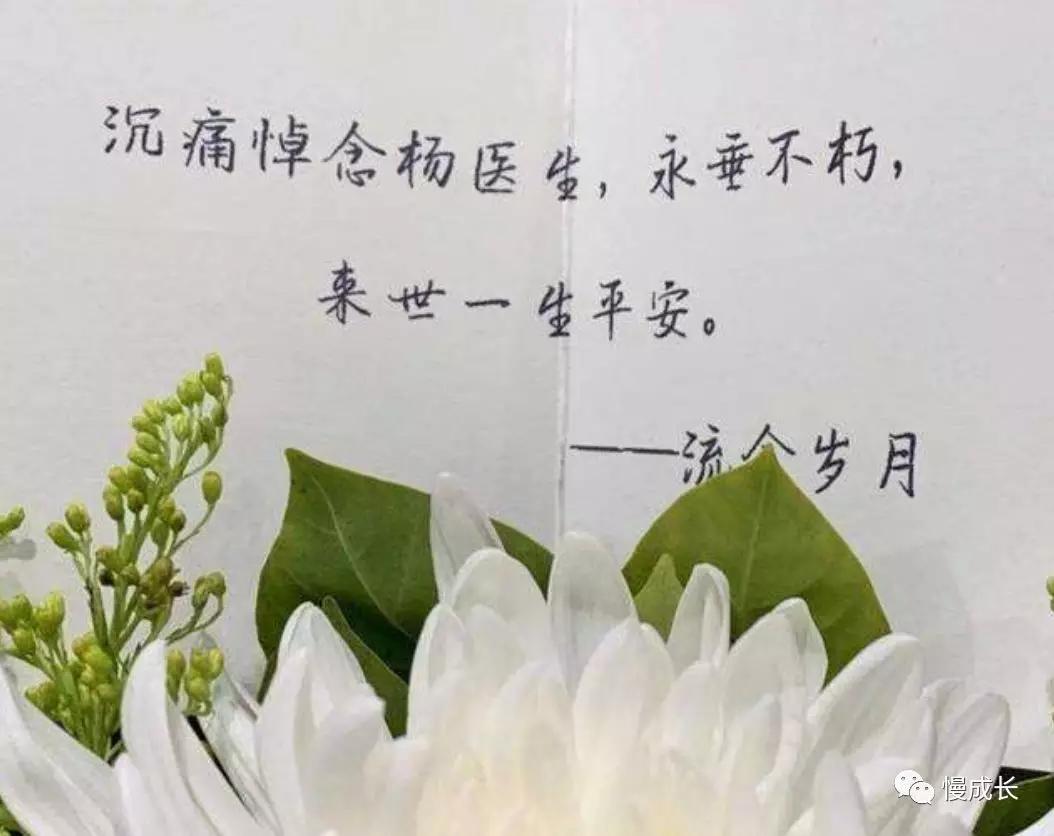 沉痛悼念杨医生，永垂不朽，
来世一生平安。
——流金岁月
慢成长